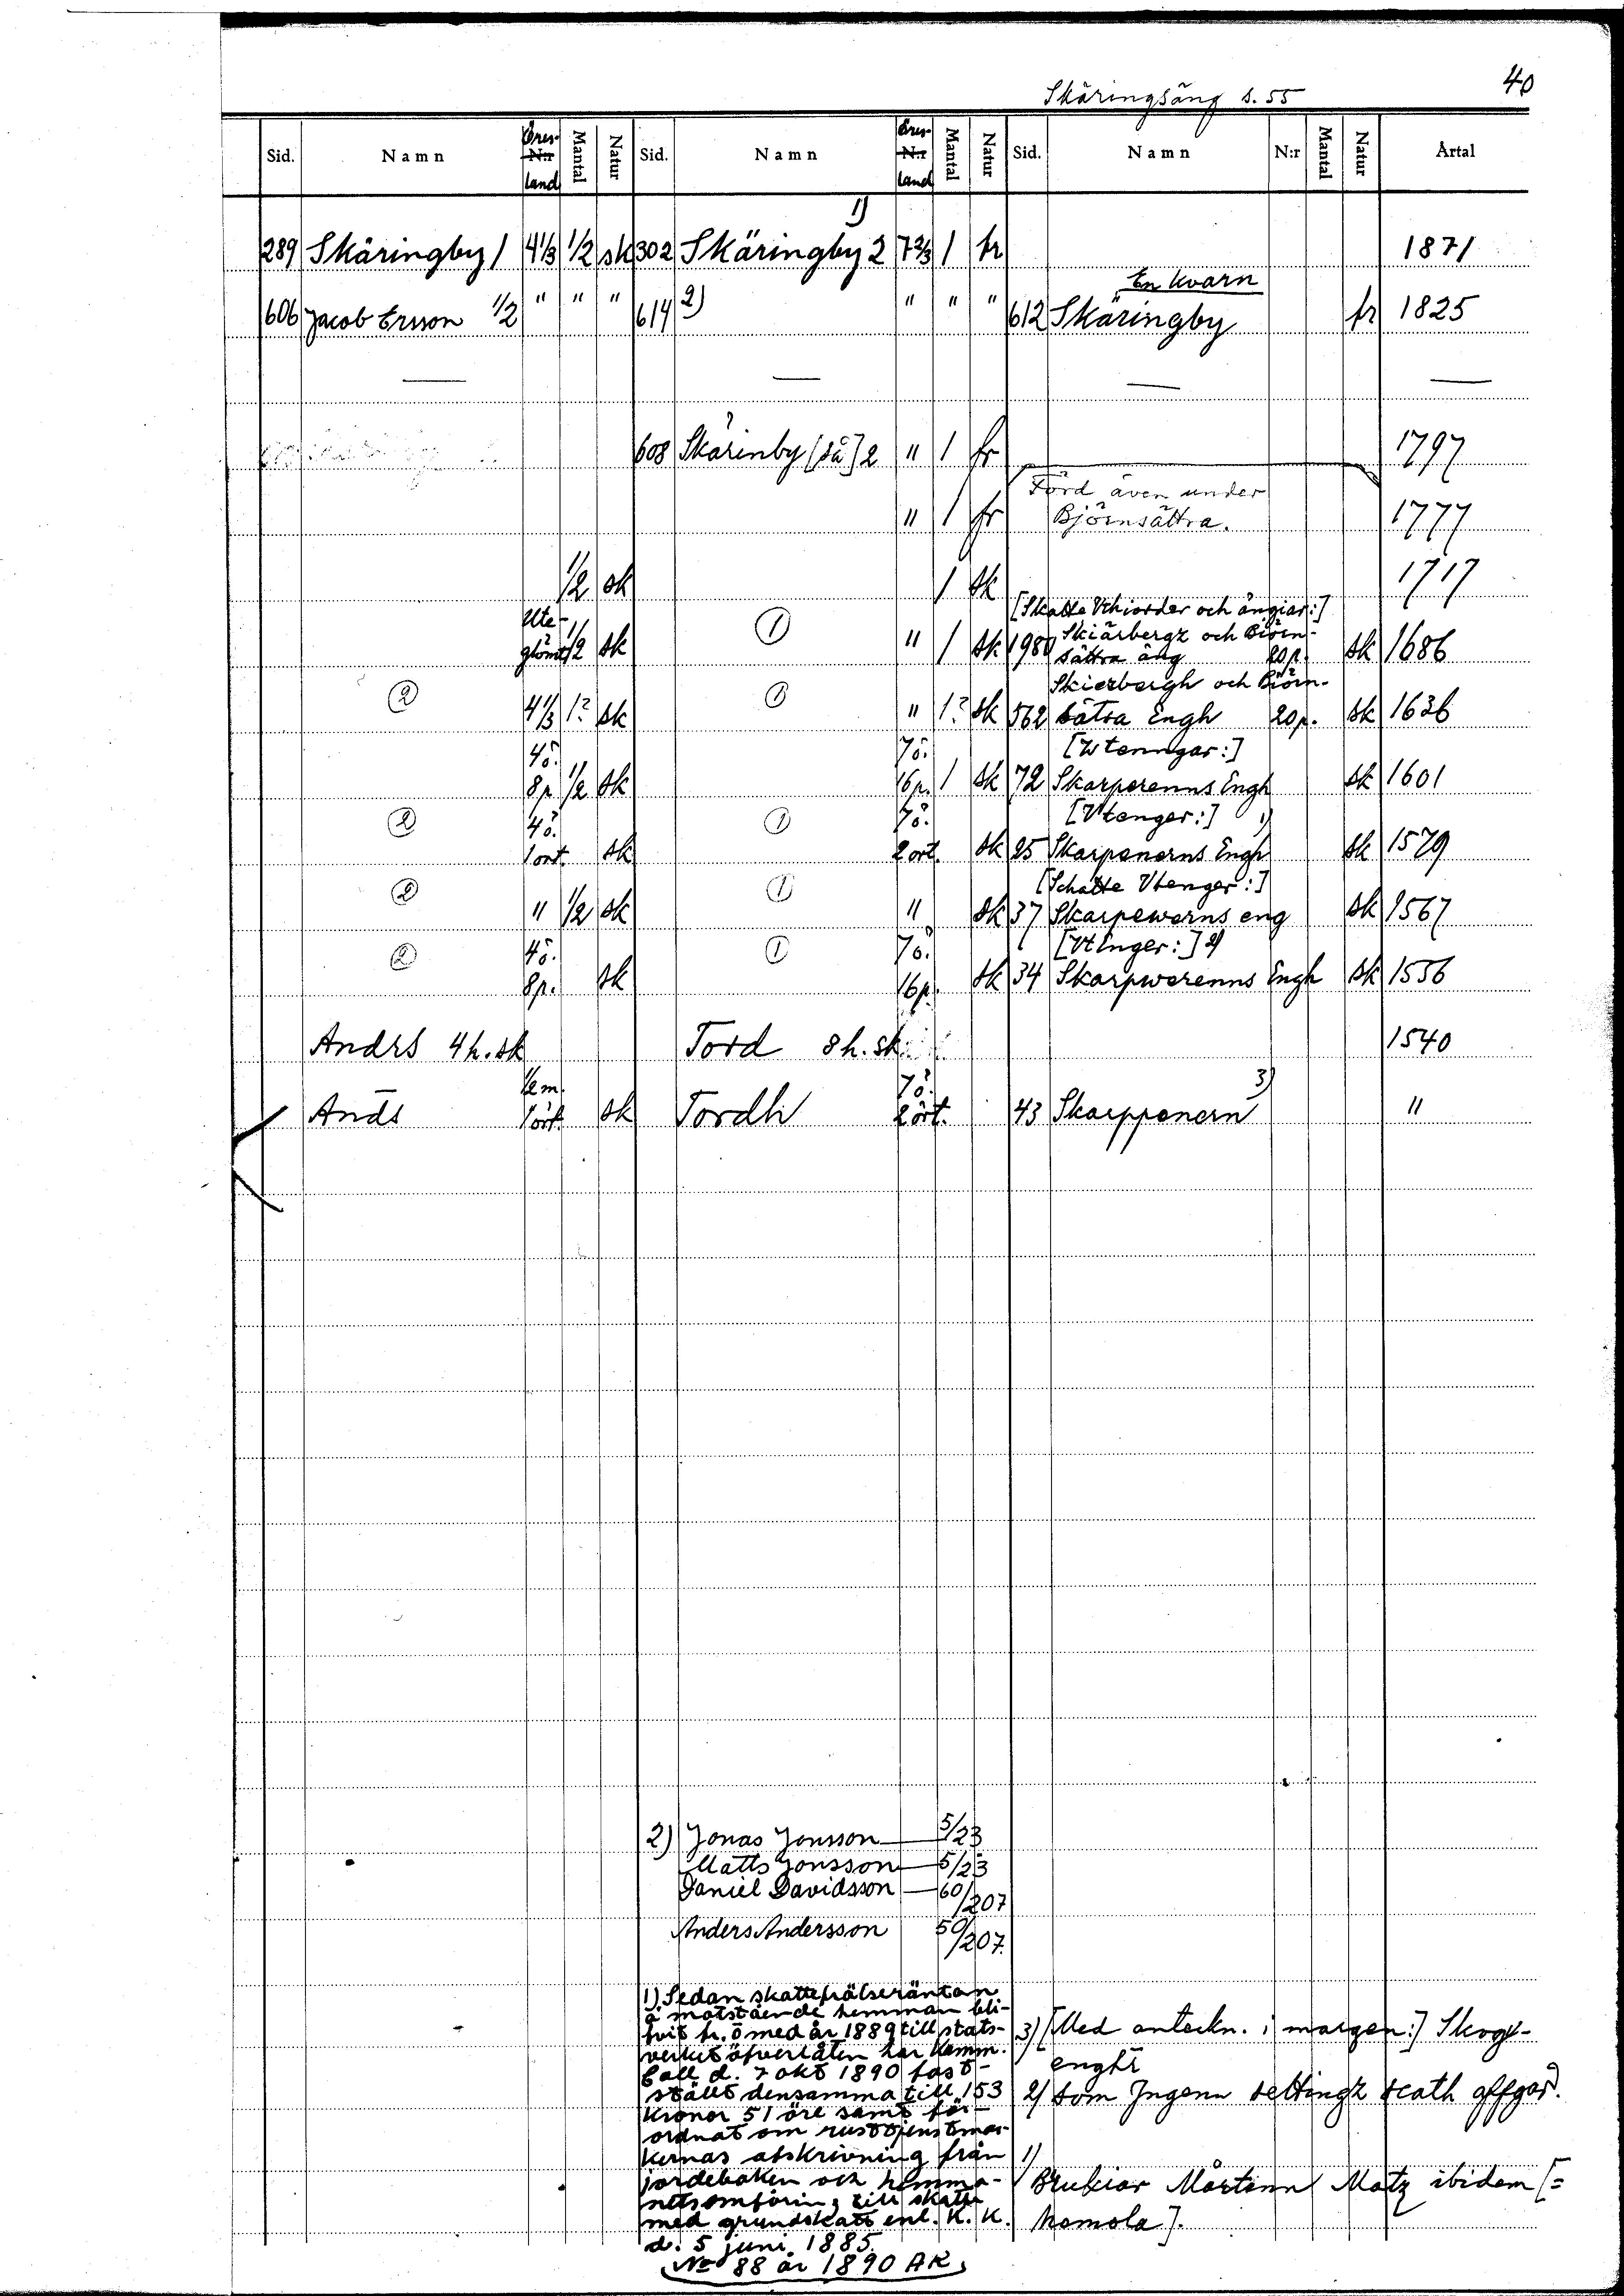 40
Skäringsäng s. 55
Sid. Namn Öres- N:r land Mantal Natur Sid. Namn Öres- N:r land Mantal Natur Sid. Namn N:r Mantal Natur Årtal
289 Skäringby 1 4 1/3 1/2 sk 302 Skäringby 2 1) 7 2/3 1 fr 1871
En kvarn
606 Jacob Ersson 1/2 " " " 614 2) " " " 612 Skäringby fr 1825
— — — —
608 Skärinby [så] 2 " 1 fr 1797
Förd även under
" 1 fr Björnsättra. 1777
1/2 sk 1 sk 1717
[Skatte Vthiorder och ängiar:]
Ute- ① Skiärbergz och Biörn-
glömt 1/2 sk " 1 sk 1980 sättra äng 20 p. sk 1686
Skierbergh och Biörn-
② 4 1/3 1? sk ① " 1? sk 562 sätra Engh 20 p. sk 1636
4ö. 7ö. [Wtenngar:]
8p. 1/2 sk 16p. 1 sk 72 Skarperenns Engh sk 1601
② 4ö. ① 7ö. [Vtenger:] 1)
1 ort. sk 2 ort. sk 25 Skarpenerns Engh sk 1579
[Schatte Vtenger:]
② " 1/2 sk ① " sk 37 Skarpewerns eng sk 1567
② 4ö. ① 7ö. [VtEnger:] 2)
8p. sk 16p. sk 34 Skarpwerenns Engh sk 1556
Andrs 4 h. sk Tord 8 h. sk 1540
1/2 m. 7ö. 3)
Ands 1 ört. sk Tordh 2 ört. 43 Skarppenern "
2) Jonas Jonsson — 5/23
Matts Jonsson — 5/23
Daniel Davidsson — 60/207
Anders Andersson 50/207.
1) Sedan skattefrälseräntan
å motstående hemman bli-
fvit fr. o med år 1889 till stats-
verket öfverlåten har Kamm.
Coll d. 7 okt 1890 fast-
ställt densamma till 153
kronor 51 öre samt för-
ordnat om rusttjenstmar-
kernas afskrivning från
jordeboken och hemma-
nets omföring till skatte
med grundskatt enl. K. K.
d. 5 juni 1885.
No 88 år 1890 AK
3) [Med anteckn. i margen:] Skogx-
enghr
2) som Jngenn settingz scath affgar.
1)
Brukiar Mårtenn Matz ibidem [=
homola].